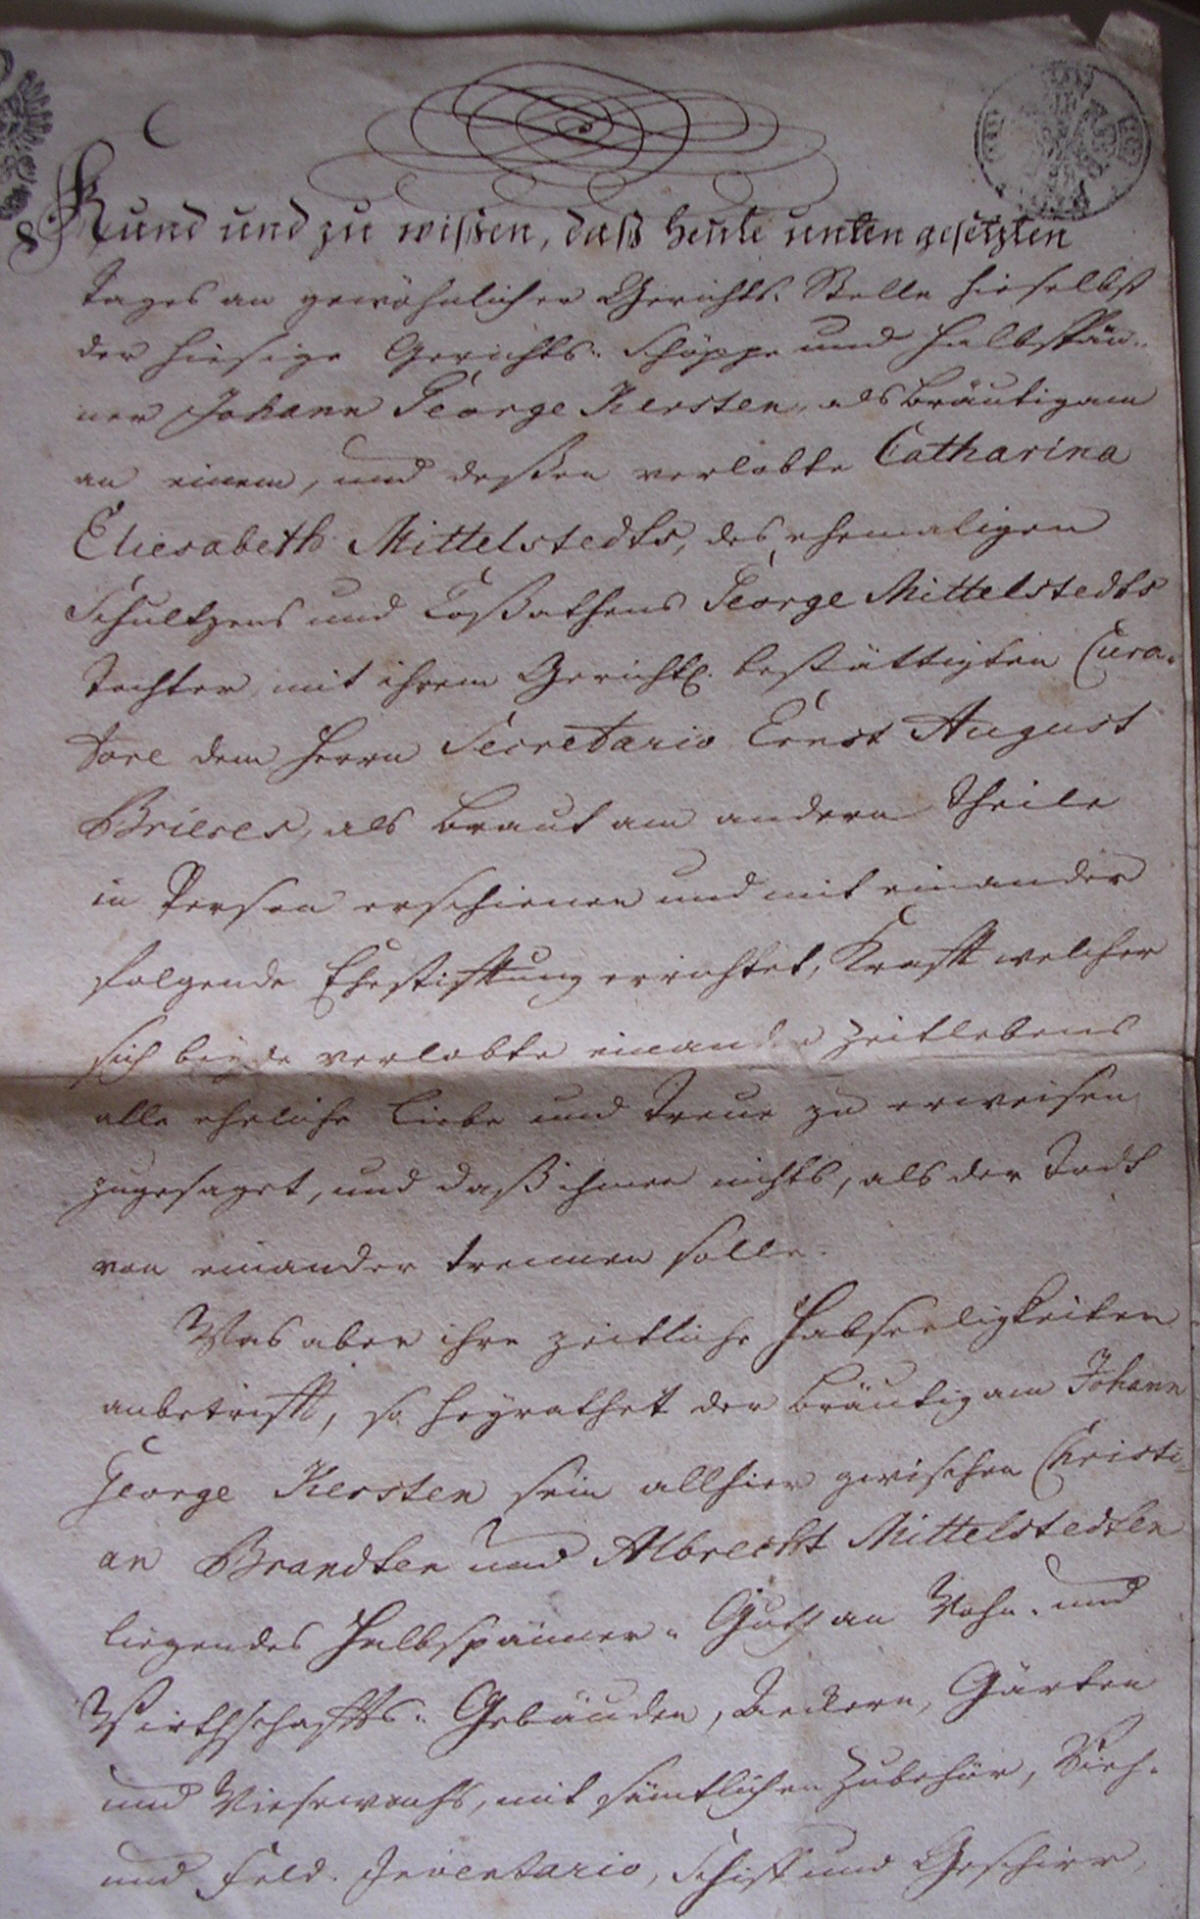 Kund und zu wißen, daß heute unten gesetzten
Tages an gewöhnlicher Gerichts-Stelle hieselbst
der hiesige Gerichts-Schöppe und Halbspän-
ner Johann George Kersten, als Bräutigam
an einem, und deßen verlobte Catharina
Eliesabeth Mittelstedts, des ehemaligen
Schultzens und Coßathens George Mittelstedts
Tochter mit ihrem Gerichtl. bestättigten Cura-
tore dem Herrn Secretario Ernst August
Brieses, als Braut am andern Theile
in Person erschienen und mit einander
folgende Ehestifftung errichtet, Krafft welcher
sich beyde verlobte einander Zeitlebens
alle eheliche Liebe und Treue zu erweisen
zugesaget, und daß ihnen nichts, als der Todt
von einander trennen solle.
Was aber ihre zeitliche Habseeligkeiten
anbetrifft, so heyrathet der Bräutigam Johann
George Kersten sein allhier zwischen Christi-
an Brandten und Albrecht Mittelstedten
liegendes Halbspänner-Guth an Wohn- und
Wirthschaffts-Gebäuden, Aeckern, Gärten
und Wiesewachs, mit sämtlichen Zubehör, Vieh-
und Feld-Inventario, Schiff und Geschirr,